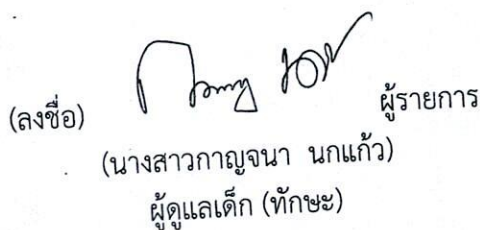 (ลงชื่อ) ผู้รายการ
(นางสาวกาญจนา นกแก้ว)
ผู้ดูแลเด็ก (ทักษะ)